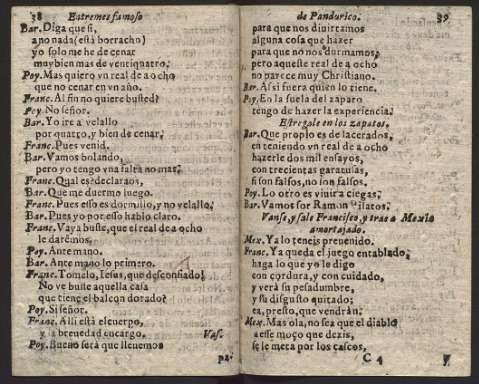 38 Entremes famoso
Bar. Diga que si,
a no nada (està borracho)
yo solo me he de cenar
muy bien mas de ventiquatro.
Poy. Mas quiero vn real de a ocho
que no cenar en vn año.
Franc. Al fin no quiere busted?
Poy. No señor.
Bar. Yo ire a velallo
por quatro, y bien de cenar.
Franc. Pues venid.
Bar. Vamos bolando,
pero yo tengo vna falta no mas.
Franc. Qual es? declaraos,
Bar. Que me duermo luego.
Franc. Pues esso es dormillo, y no velallo.
Bar. Pues yo por esso hablo claro.
Franc. Vaya busté, que el real de a ocho
le darèmos.
Poy. Ante mano.
Bar. Ante mano lo primero.
Franc. Tomelo, Iesus, que desconfiado!
No ve busté aquella casa
que tiene el balcon dorado?
Poy. Si señor.
Franc. Alli està el cuerpo,
y la breuedad encargo. Vas.
Poy. Bueno serà que lleuemos
pa-
de Pandurico. 39
para que nos diuirtamos
alguna cosa que hazer
para que no nos durmamos,
pero aqueste real de a ocho
no parece muy Christiano.
Bar. Assi fuera quien lo tiene.
Poy. En la suela del zapato
tengo de hazer la experiencia.
Estregale en los zapatos.
Bar. Que propio es de lacerados,
en teniendo vn real de a ocho
hazerle dos mil ensayos,
con trecientas garatusas,
si son falsos, no son falsos.
Poy. Lo otro es viuir a ciegas.
Bar. Vamos sor Ramon
Vanse, y sale Francisco, y trae a Mexia
amortajado.
Mex. Ya lo teneis preuenido.
Franc. Ya queda el juego entablado,
haga lo que yo le digo
con cordura, y con cuidado,
y verà su pesadumbre,
y su disgusto quitado;
ea, presto, que vendràn.
Mex. Mas ola, no sea que el diablo
a esse moço que dezis,
se le meta por los cascos,
C 4 y